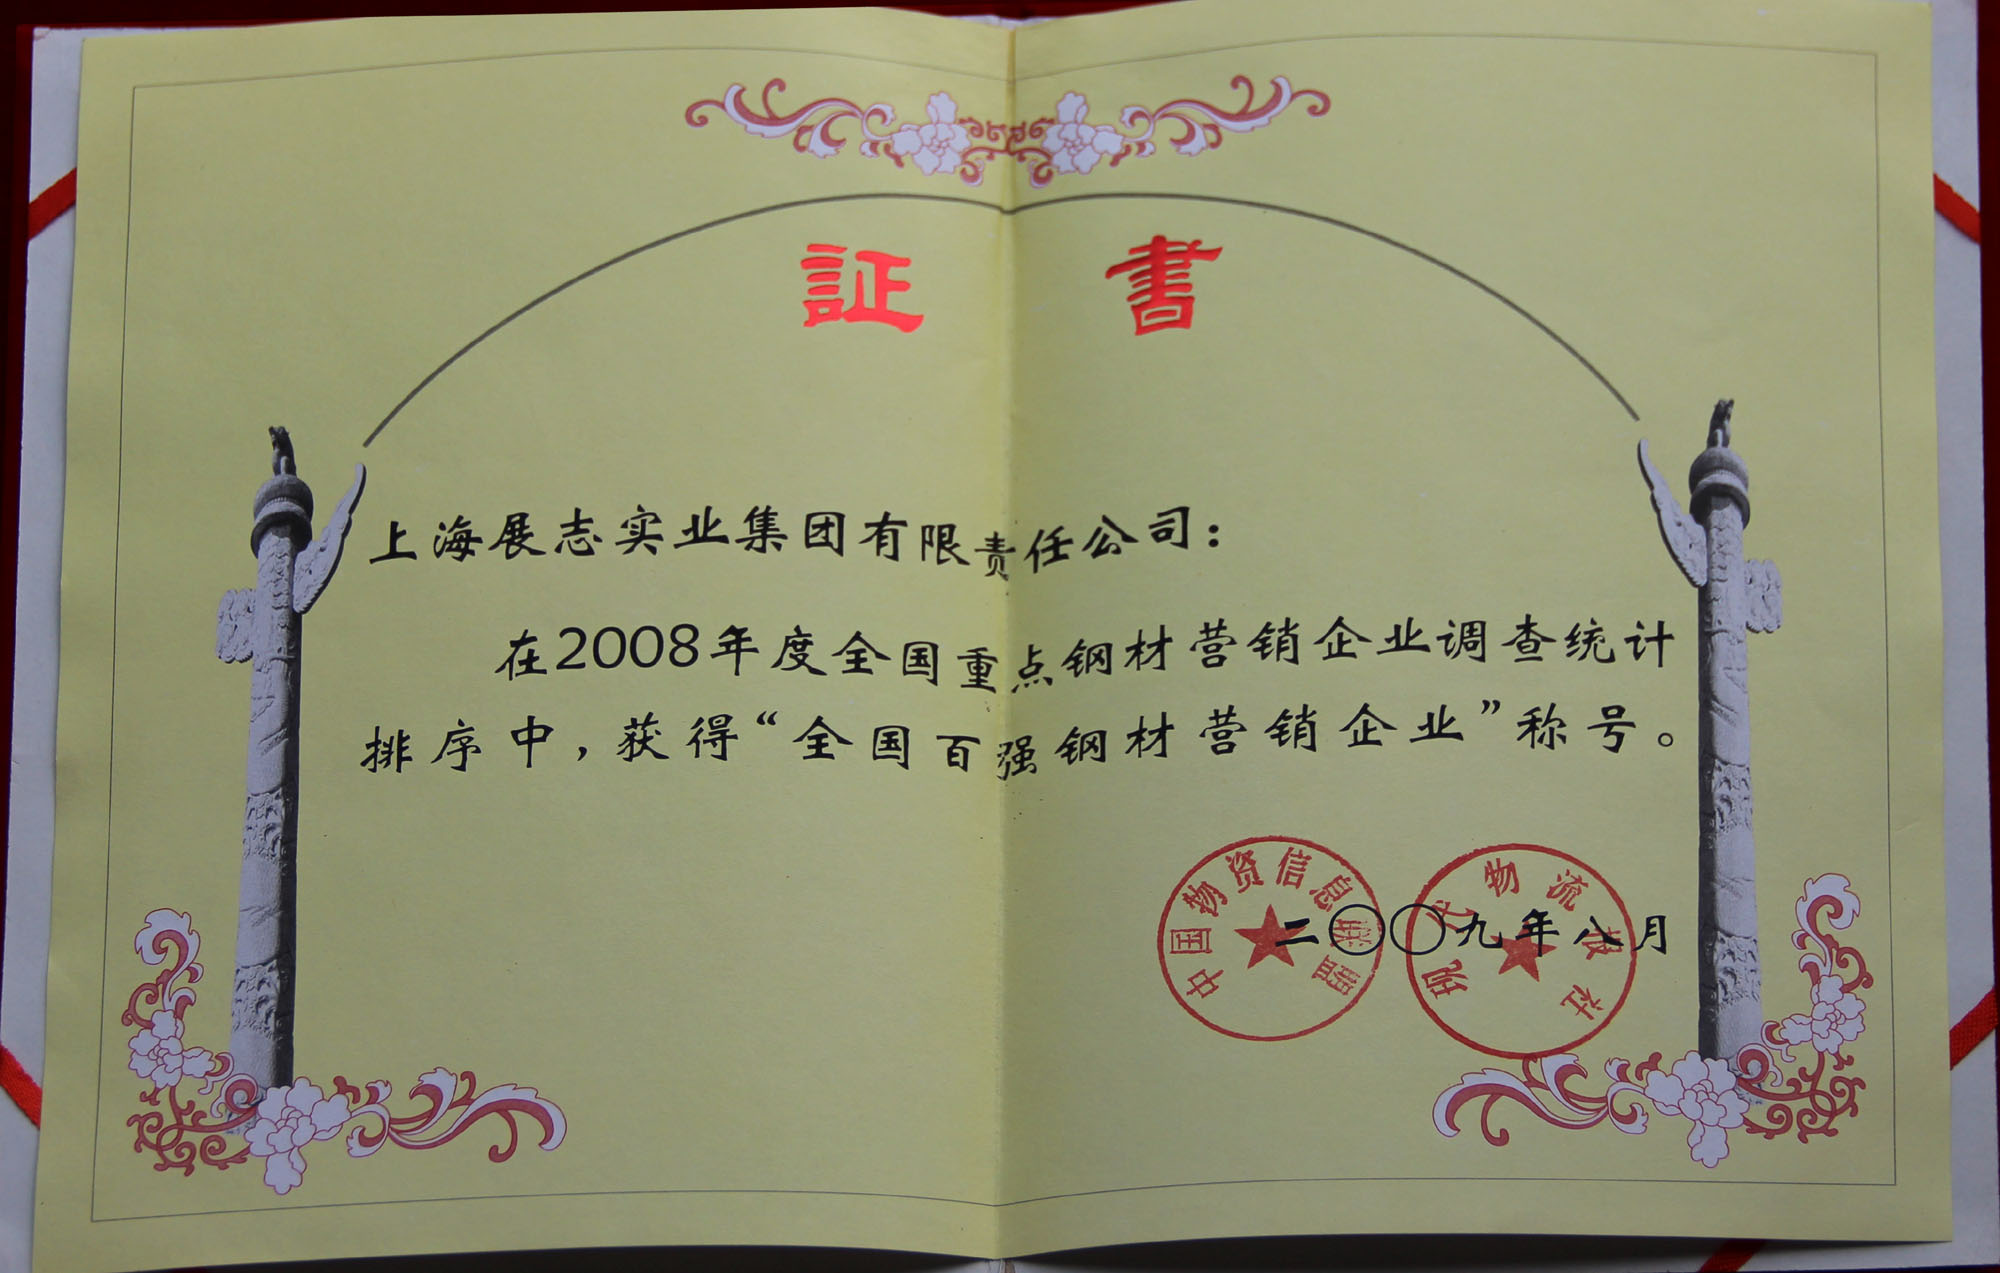 証 書
上海展志实业集团有限责任公司：
在2008年度全国重点钢材营销企业调查统计
排序中，获得“全国百强钢材营销企业”称号。
中国物资信息联盟
现代物流报社
二〇〇九年八月